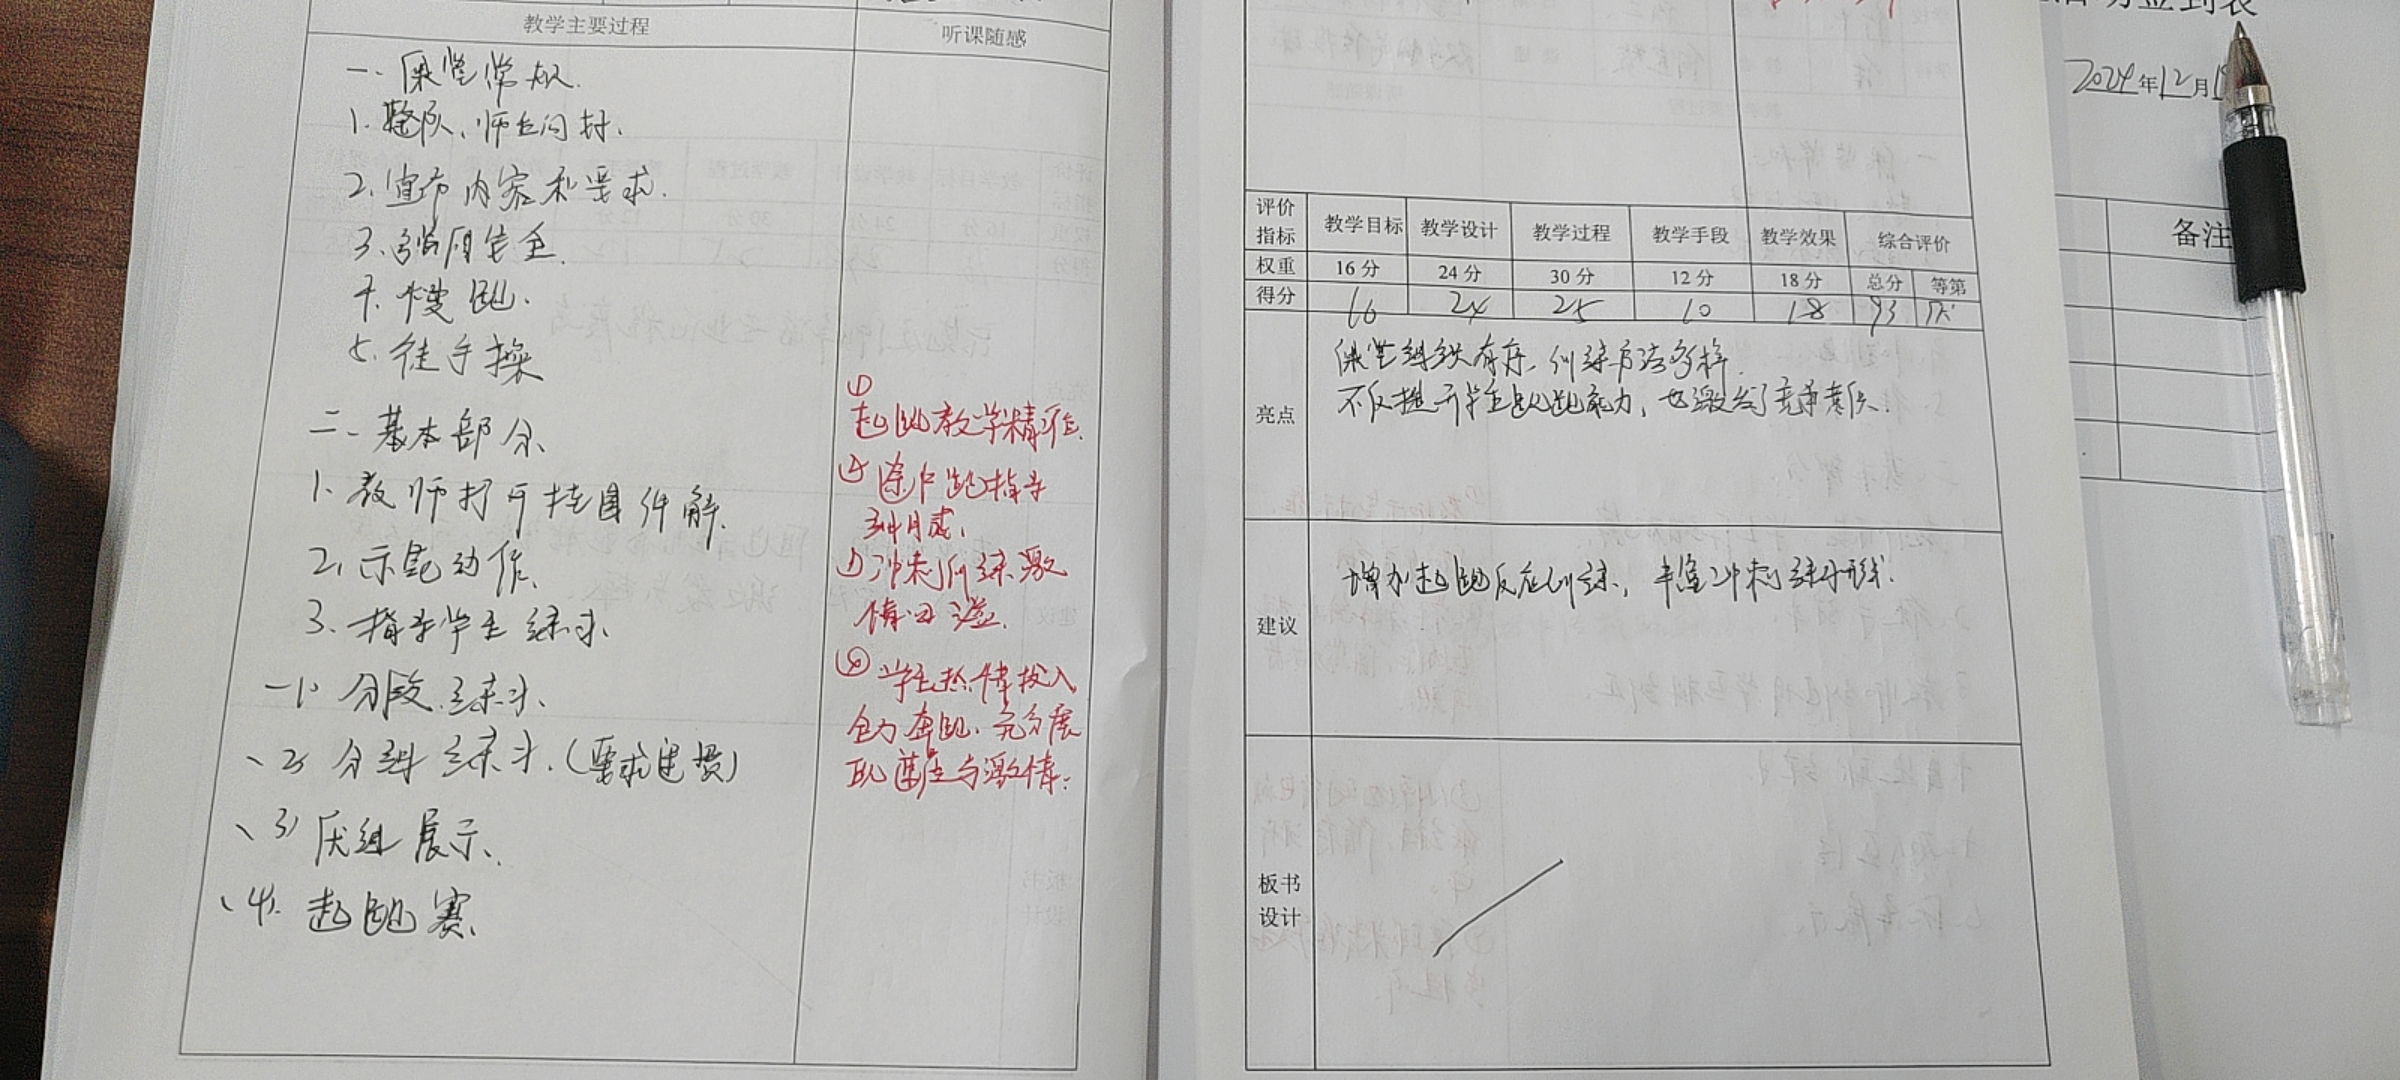 教学主要过程
听课随感
一、课堂常规.
1. 整队、师生问好.
2. 宣布内容和要求.
3. 强调安全.
4. 慢跑.
5. 徒手操
二、基本部分、
1. 教师打开挂图讲解.
2. 示范动作.
3. 指导学生练习、
1. 分段练习、
2) 分组练习.(要求连贯)
3) 展示、
4). 起跑赛、
①
起跑教学精准.
② 途中跑指导
到
冲刺训练激
情四溢.
④ 学生热情投入
全力奔跑、充分展
现速度与激情.
评价指标 教学目标 教学设计 教学过程 教学手段 教学效果 综合评价
权重 16分 24分 30分 12分 18分 总分 等第
得分 16 24 25 10 18 93
亮点
课堂组织有序,训练方法多样.
不仅提升学生跑能力,也激发了竞争意识.
建议
增加起跑反应训练,丰富冲刺练习形式.
板书设计
签到表
2024年12月
备注